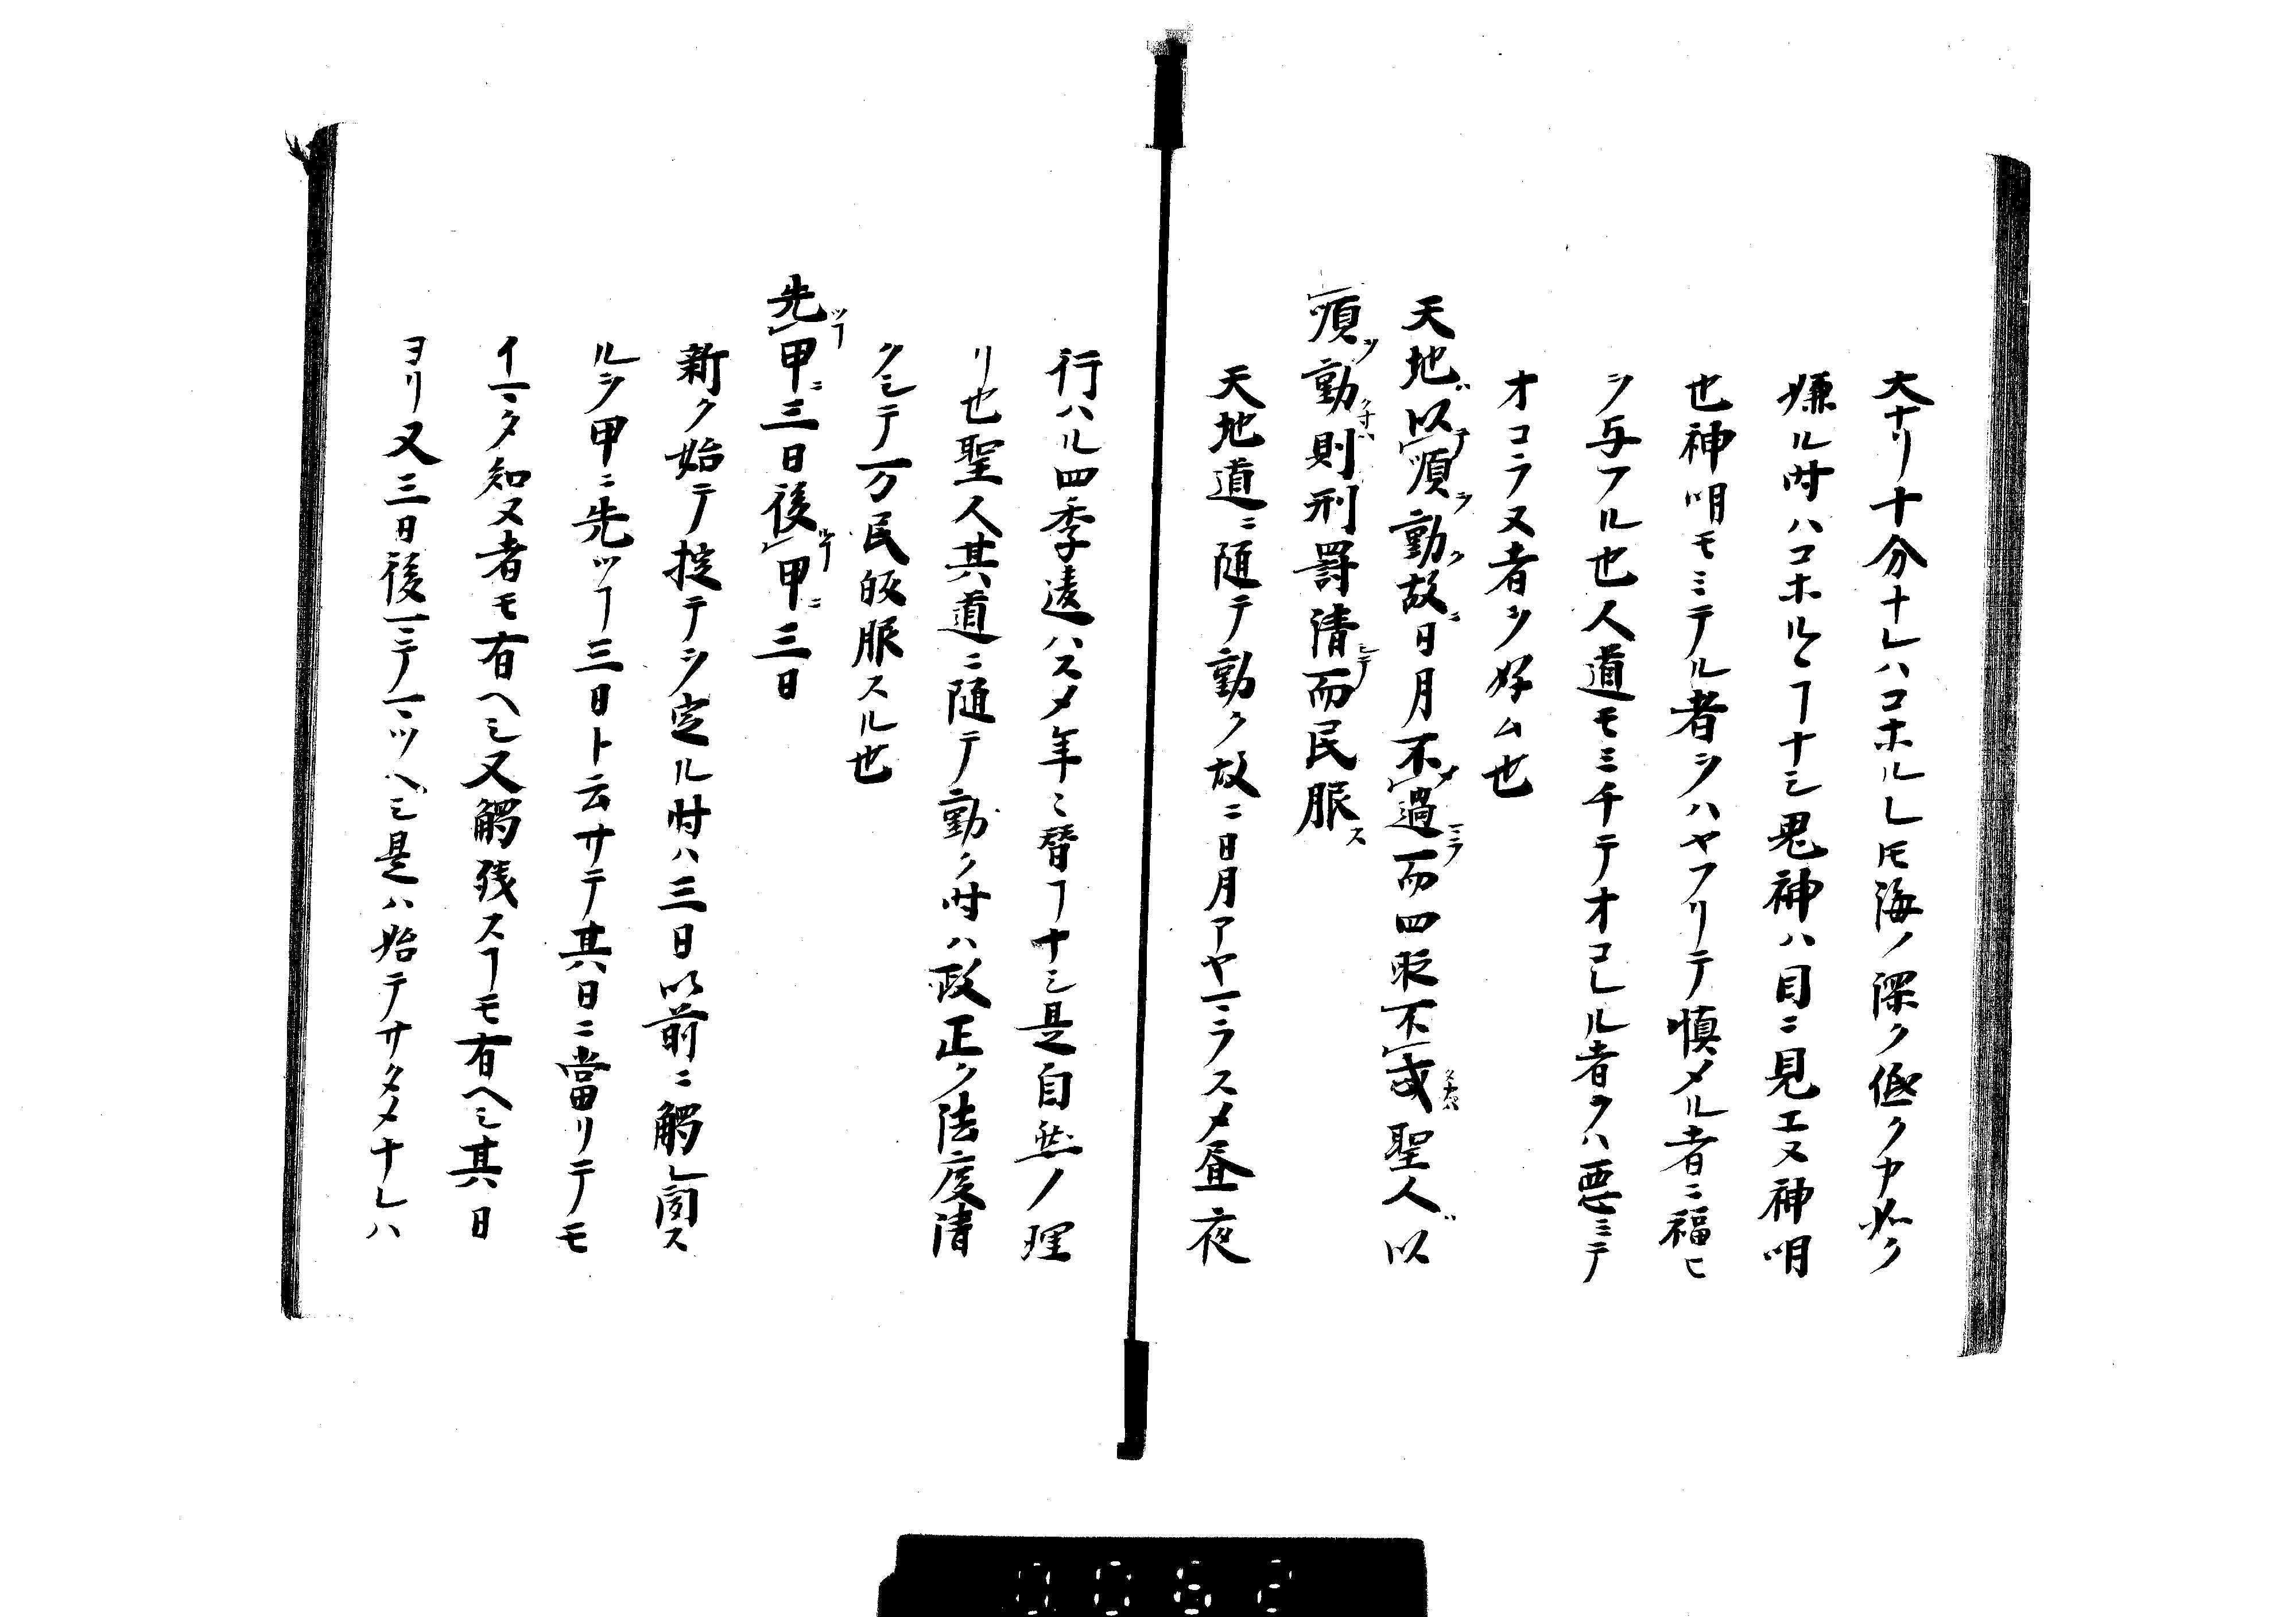 大ナリ十分ナレハコホルレ𪜈海ノ深ク低クカ如ク
嫌ル時ハコホルヽヿナシ鬼神ハ目ニ見エヌ神明
也神明モミテル者ヲハヤフリテ慎メル者ニ福ヒ
ヲ与フル也人道モミチテオコレル者ヲハ悪ミテ
オコラヌ者ヲ好ム也
天地以順動故日月不過而四時不忒聖人以
順動則刑罰清而民服
天地道ニ随テ動ク故ニ日月アヤマラスメ昼夜
行ハル四季違ハスメ年ミ替ヿナシ是自然ノ理
リ也聖人其道ニ随テ動ク時ハ政正ク法度清
クシテ万民皈服スル也
先甲三日後甲三日
新ク始テ掟テヲ定ル時ハ三日以前ニ觸レ聞ス
ルヲ甲ニ先ツヿ三日ト云サテ其日ニ當リテモ
イマタ知ヌ者モ有ヘシ又觸残スヿモ有ヘシ其日
ヨリ又三日後マテマツヘシ是ハ始テサタメナレハ
0062